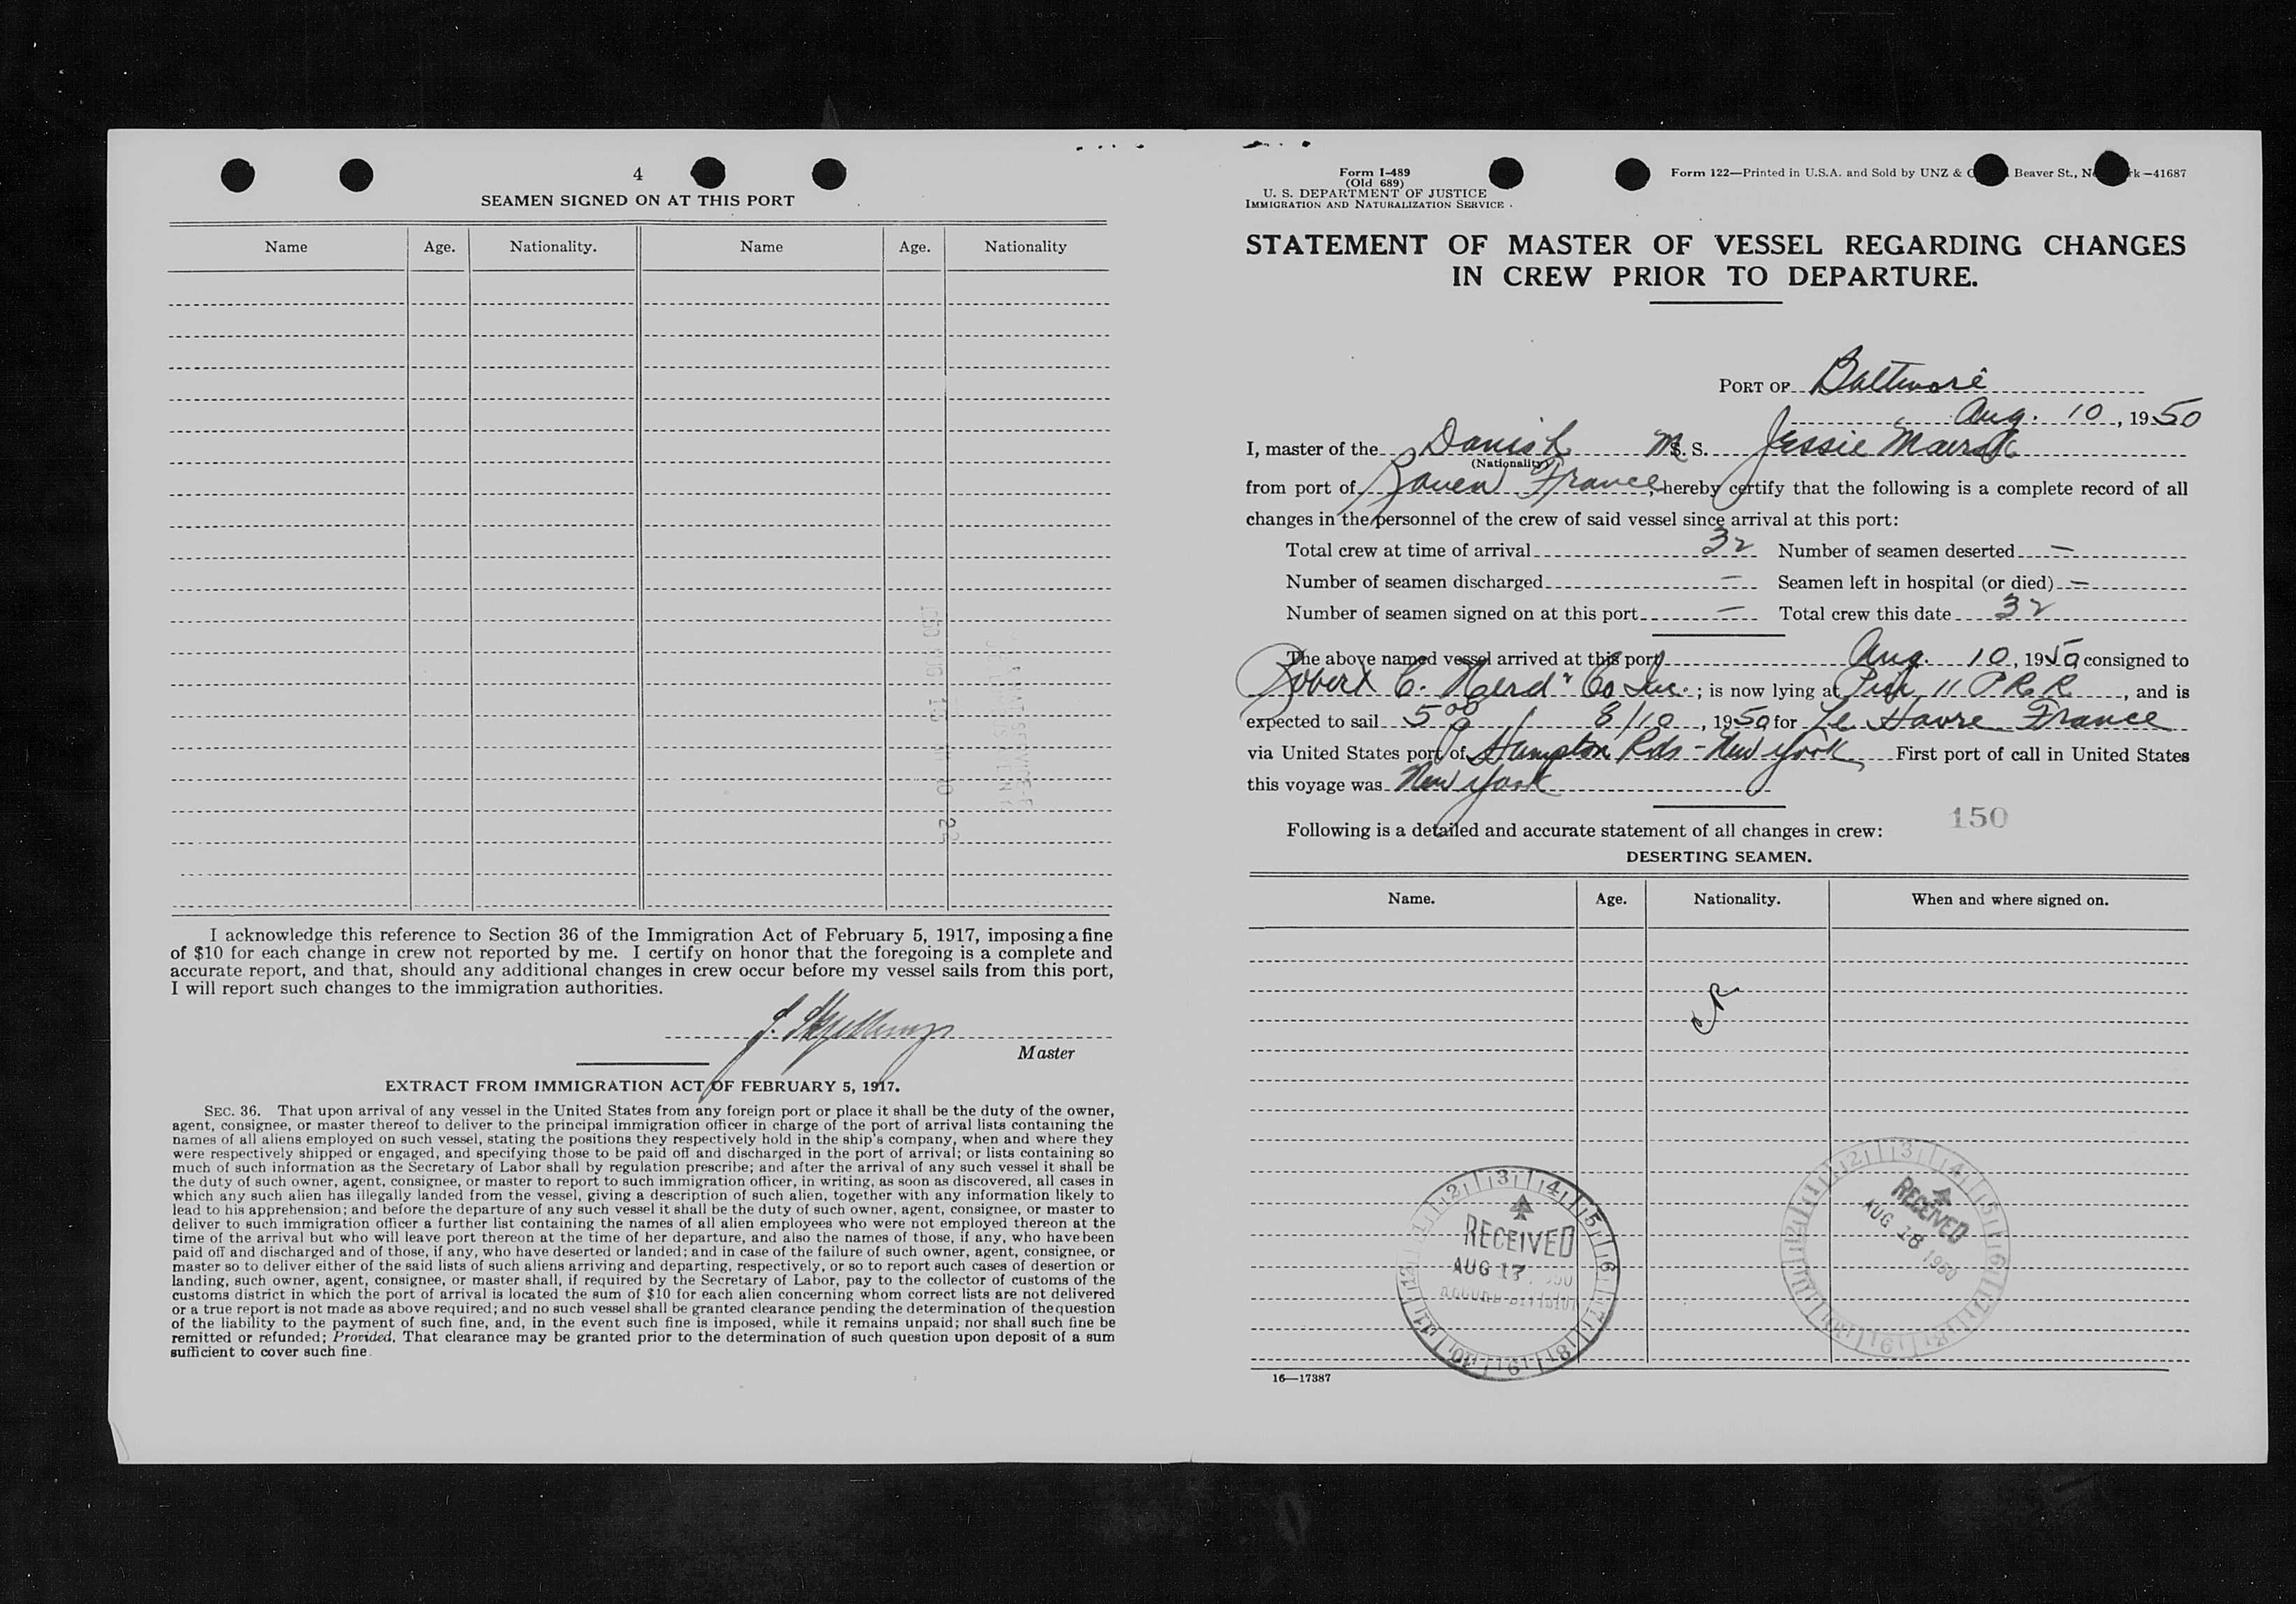 4
SEAMEN SIGNED ON AT THIS PORT
Name Age. Nationality. Name Age. Nationality
I acknowledge this reference to Section 36 of the Immigration Act of February 5, 1917, imposing a fine
of $10 for each change in crew not reported by me. I certify on honor that the foregoing is a complete and
accurate report, and that, should any additional changes in crew occur before my vessel sails from this port,
I will report such changes to the immigration authorities.
Master
EXTRACT FROM IMMIGRATION ACT OF FEBRUARY 5, 1917.
SEC. 36. That upon arrival of any vessel in the United States from any foreign port or place it shall be the duty of the owner,
agent, consignee, or master thereof to deliver to the principal immigration officer in charge of the port of arrival lists containing the
names of all aliens employed on such vessel, stating the positions they respectively hold in the ship's company, when and where they
were respectively shipped or engaged, and specifying those to be paid off and discharged in the port of arrival; or lists containing so
much of such information as the Secretary of Labor shall by regulation prescribe; and after the arrival of any such vessel it shall be
the duty of such owner, agent, consignee, or master to report to such immigration officer, in writing, as soon as discovered, all cases in
which any such alien has illegally landed from the vessel, giving a description of such alien, together with any information likely to
lead to his apprehension; and before the departure of any such vessel it shall be the duty of such owner, agent, consignee, or master to
deliver to such immigration officer a further list containing the names of all alien employees who were not employed thereon at the
time of the arrival but who will leave port thereon at the time of her departure, and also the names of those, if any, who have been
paid off and discharged and of those, if any, who have deserted or landed; and in case of the failure of such owner, agent, consignee, or
master so to deliver either of the said lists of such aliens arriving and departing, respectively, or so to report such cases of desertion or
landing, such owner, agent, consignee, or master shall, if required by the Secretary of Labor, pay to the collector of customs of the
customs district in which the port of arrival is located the sum of $10 for each alien concerning whom correct lists are not delivered
or a true report is not made as above required; and no such vessel shall be granted clearance pending the determination of the question
of the liability to the payment of such fine, and, in the event such fine is imposed, while it remains unpaid; nor shall such fine be
remitted or refunded; Provided, That clearance may be granted prior to the determination of such question upon deposit of a sum
sufficient to cover such fine.
Form I-489
(Old 689)
U. S. DEPARTMENT OF JUSTICE
IMMIGRATION AND NATURALIZATION SERVICE
Form 122—Printed in U.S.A. and Sold by UNZ & Beaver St., —41687
STATEMENT OF MASTER OF VESSEL REGARDING CHANGES
IN CREW PRIOR TO DEPARTURE.
PORT OF Baltimore
Aug. 10, 1950
I, master of the Danish M. S. Jessie Maersk
(Nationality)
from port of Rouen France, hereby certify that the following is a complete record of all
changes in the personnel of the crew of said vessel since arrival at this port:
Total crew at time of arrival 32 Number of seamen deserted —
Number of seamen discharged — Seamen left in hospital (or died) —
Number of seamen signed on at this port — Total crew this date 32
The above named vessel arrived at this port Aug. 10, 1950 consigned to
Robert C. Herd & Co Inc.; is now lying at Pier 11 P R R, and is
expected to sail 5 00 8/10, 1950 for Le Havre France
via United States port of Hampton Rds - New York First port of call in United States
this voyage was New York
150
Following is a detailed and accurate statement of all changes in crew:
DESERTING SEAMEN.
Name. Age. Nationality. When and where signed on.
RECEIVED
AUG 17
RECEIVED
AUG 18 1950
16—17387